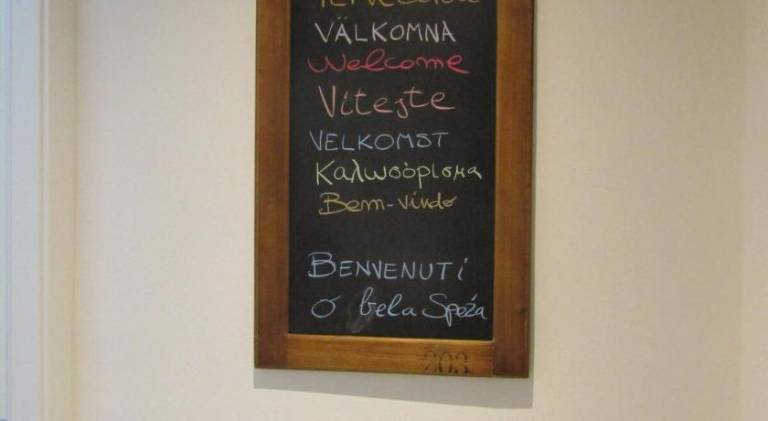 VÄLKOMNA
Welcome
Vítejte
VELKOMST
Καλωσόρισμα
Bem-vindo
BENVENUTI
O bela Speža
203